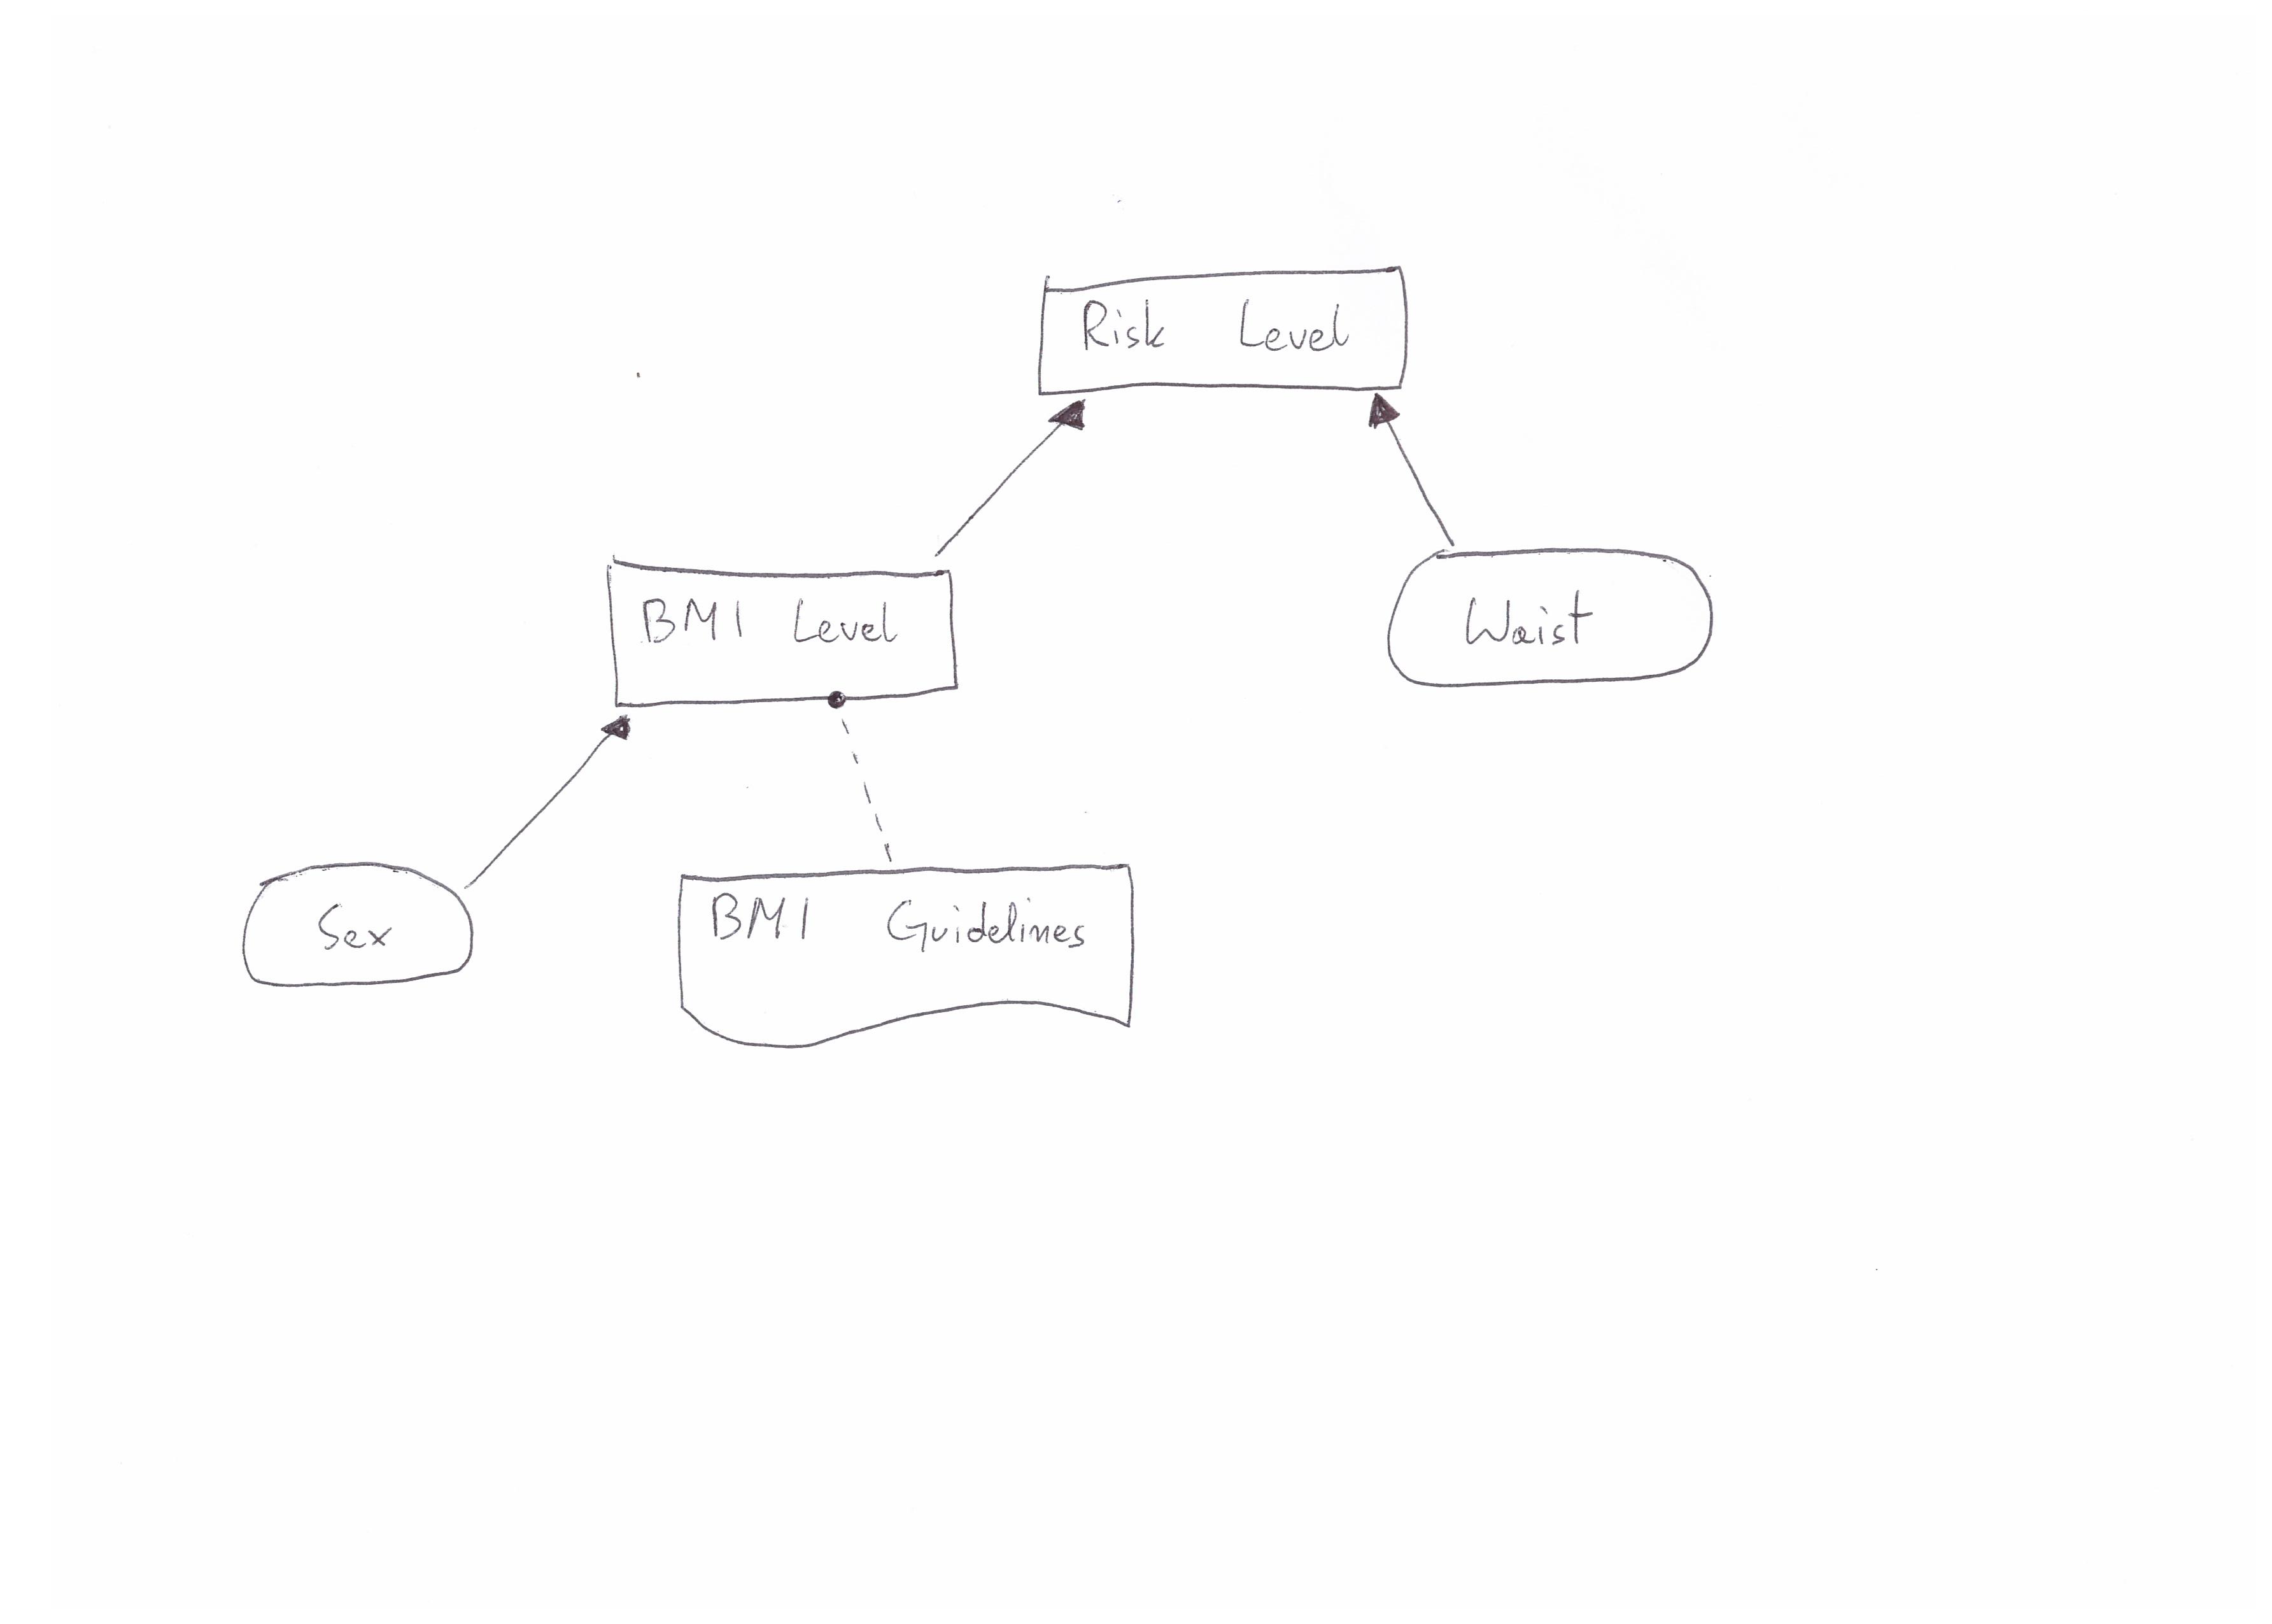 Risk Level
BMI Level
Waist
Sex
BMI Guidelines